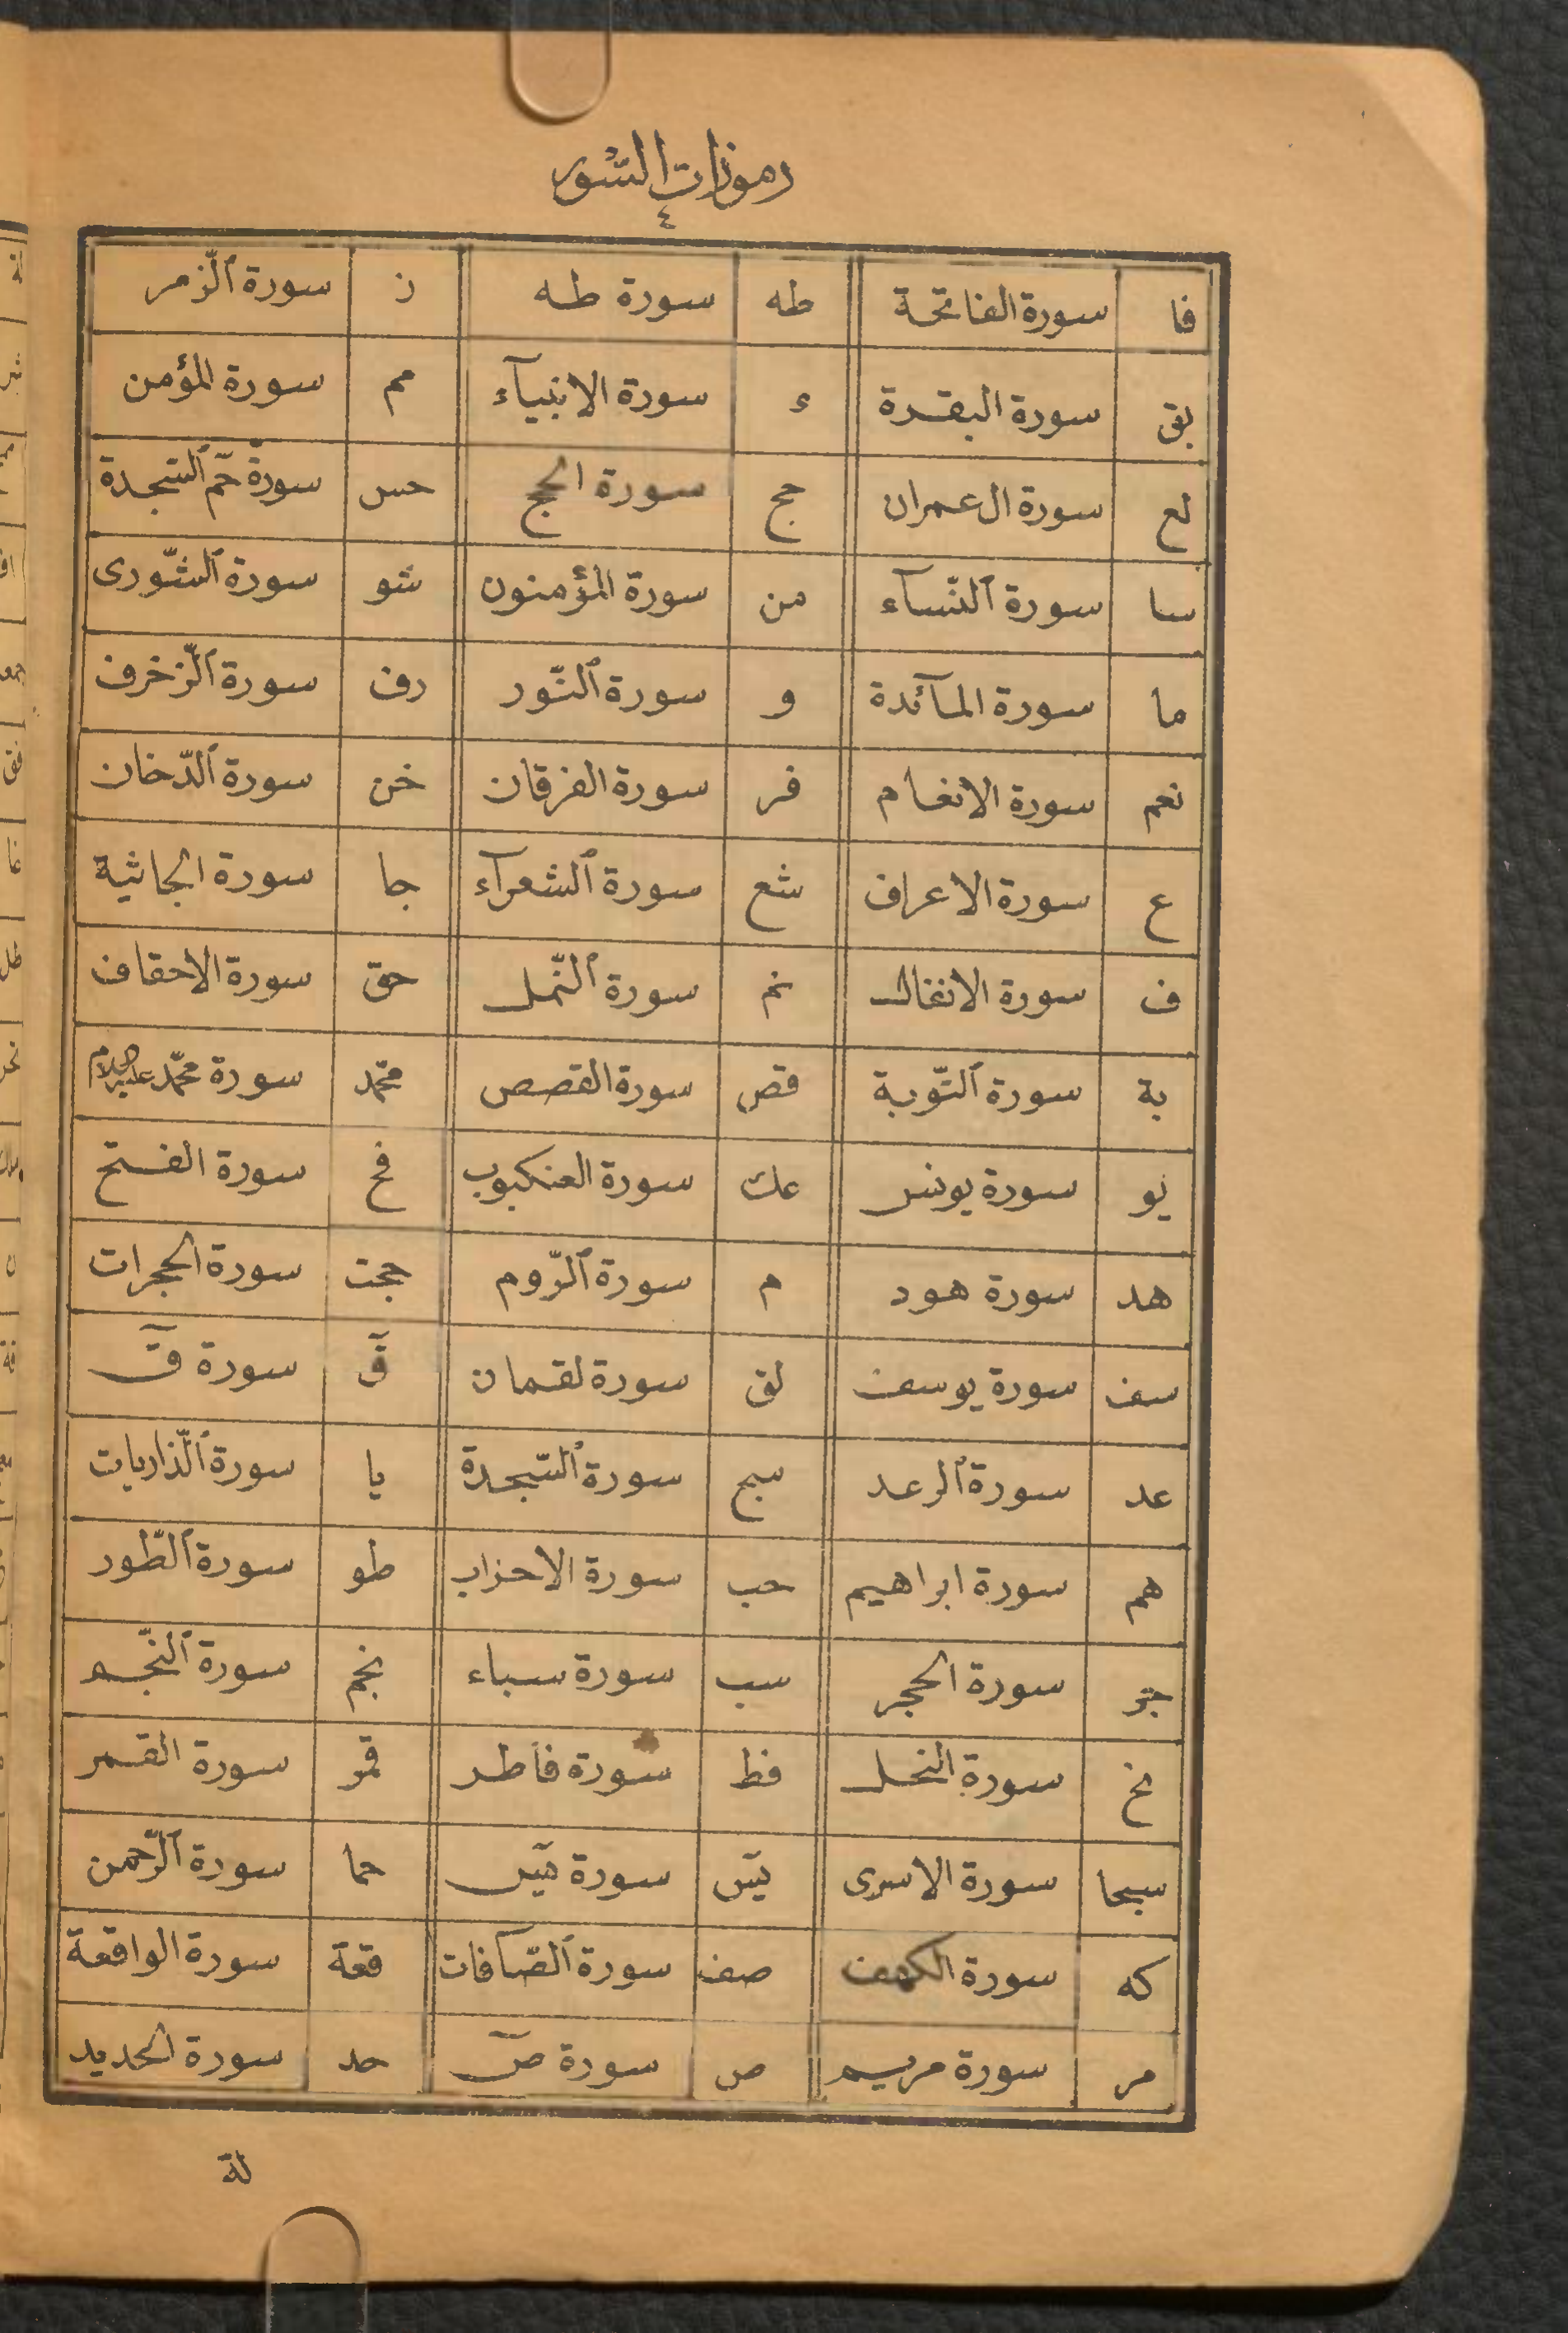 رموزات السّور
٤
فا سورة الفاتحة طه سورة طه ز سورة الزّمر
بق سورة البقرة ء سورة الانبيآء مم سورة المؤمن
لع سورة ال عمران حج سورة الحج حس سورة حٓم السّجدة
سا سورة النّسآء من سورة المؤمنون شو سورة الشّورى
ما سورة المآئدة و سورة النّور رف سورة الزّخرف
نعم سورة الانعام فر سورة الفرقان خن سورة الدّخان
ع سورة الاعراف شع سورة الشعرآء جا سورة الجاثية
ف سورة الانفال نم سورة النّمل حق سورة الاحقاف
بة سورة التّوبة قص سورة القصص محّمد سورة محمّد عليه السلام
يو سورة يونس عك سورة العنكبوب فح سورة الفتح
هد سورة هود م سورة الرّوم حجت سورة الحجرات
سف سورة يوسف لق سورة لقمان قٓ سورة قٓ
عد سورة الرعد سج سورة السّجدة يا سورة الذّاريات
هم سورة ابراهيم حب سورة الاحزاب طو سورة الطّور
جر سورة الحجر سب سورة سباء نجم سورة النّجم
نح سورة النحل فط سورة فاطر قمر سورة القمر
سبحا سورة الاسرى يٓس سورة يٓس حما سورة الرّحمن
كه سورة الكهف صف سورة الصّافات قعة سورة الواقعة
مر سورة مريم ص سورة صٓ حد سورة الحديد
لة